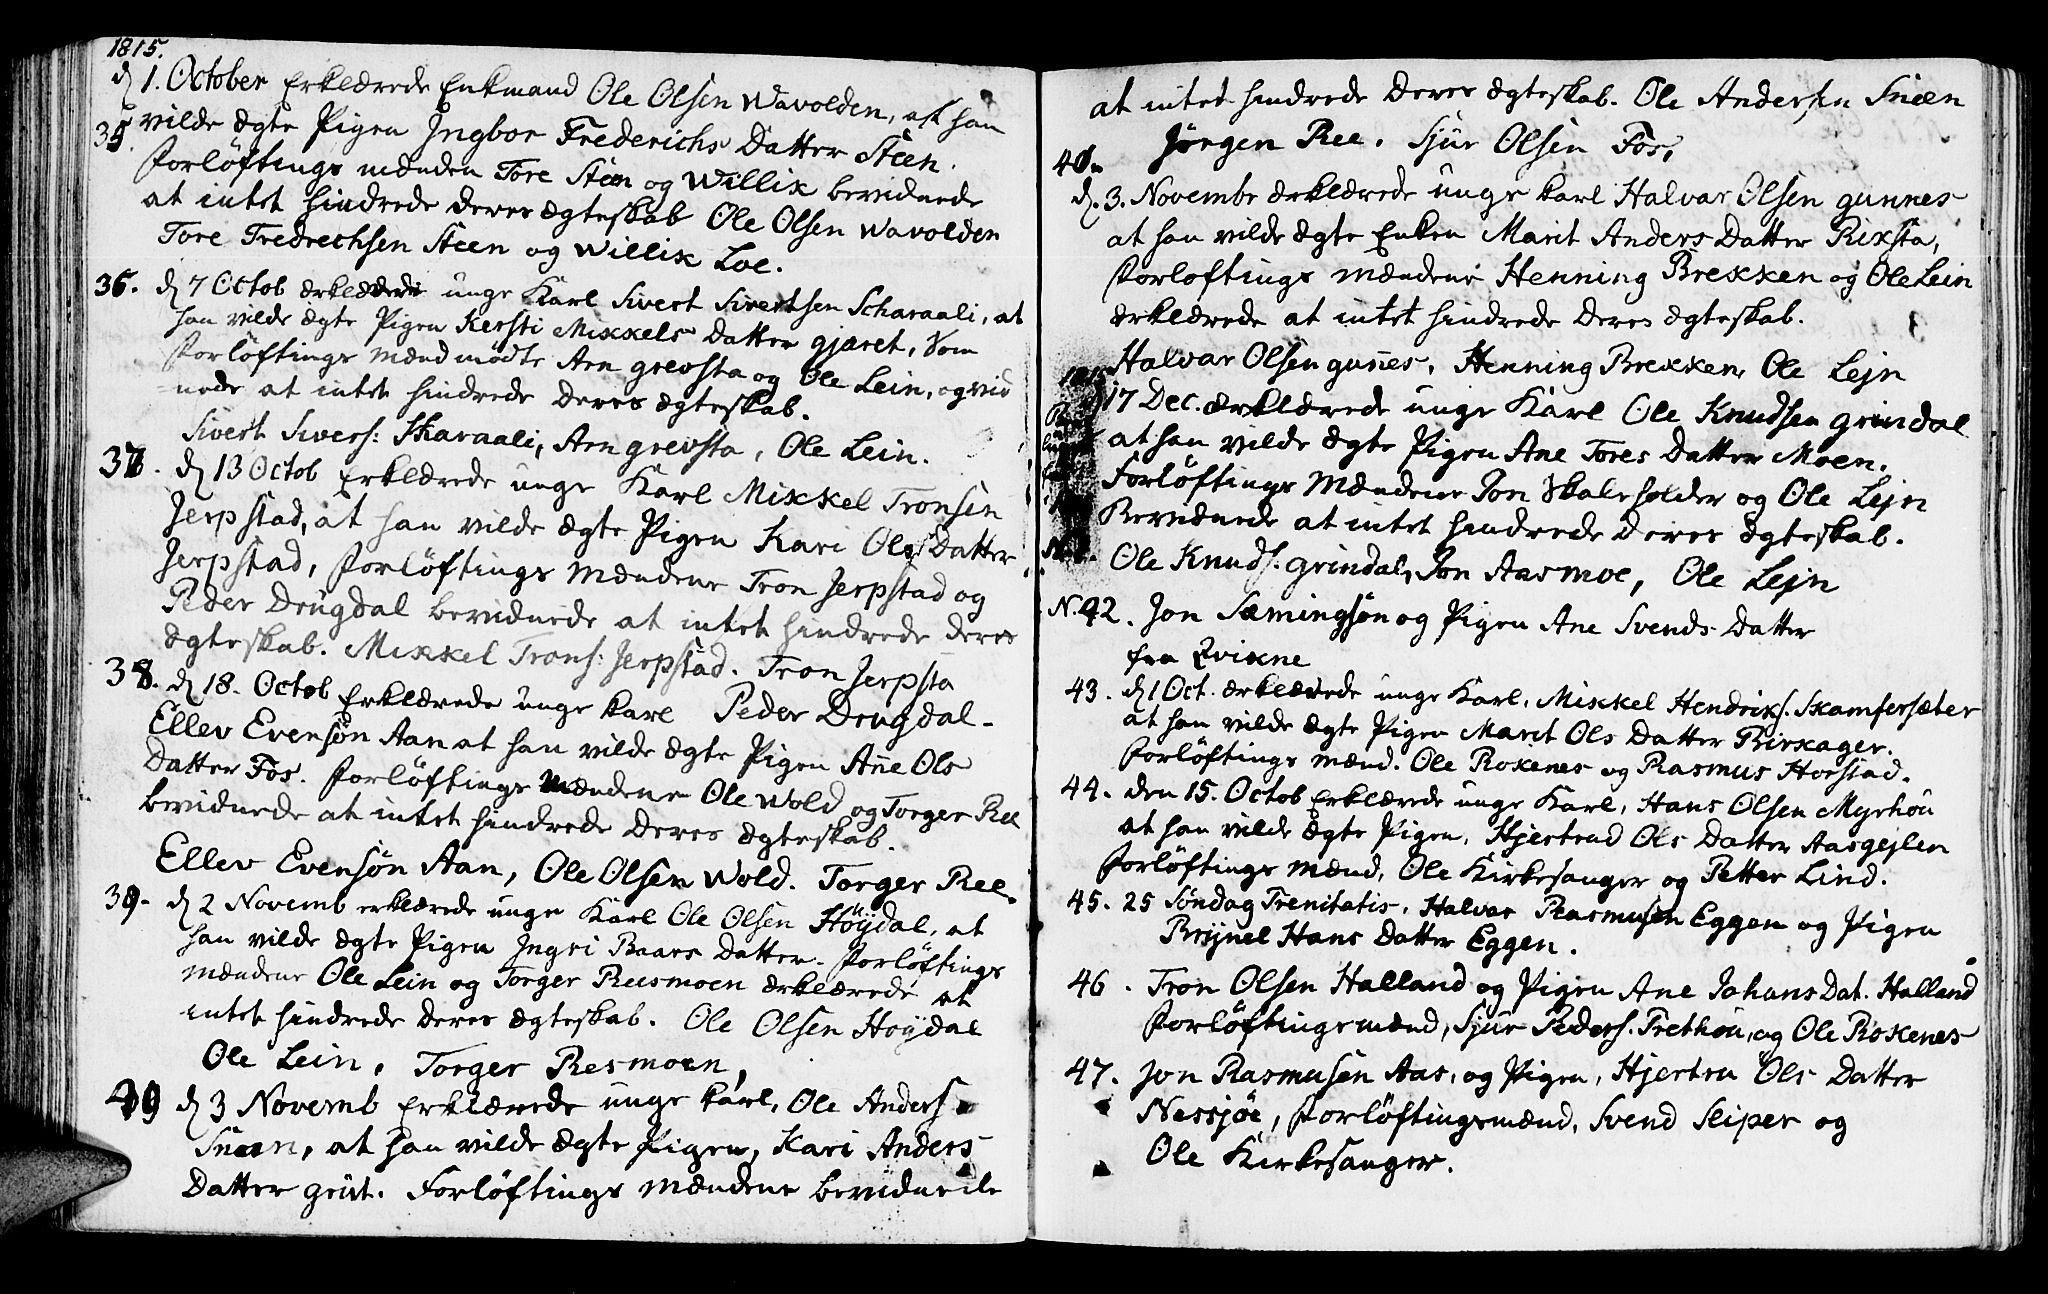 1815.
d 1. October Erklærede Enkmand Ole Olsen Wavolden, at han
35. vilde ægte Pigen Jngbor Frederichs Datter Steen.
Forlöftings mænden Tore Steen og Willix bevidnede
at intet hindrede deres ægteskab Ole Olsen Wavolden
Tore Fredrechsen Steen og Willix Loe.
36. d 7 Octob ærklærede unge Karl Sivert Sivertsen Scharaali, at
han vilde ægte Pigen Kersti Mikkels Datter gjæret, Som
Forlöftings mænd mødte Arn grevsta og Ole Lein, og vid
nede at intet hindrede deres ægteskab.
Sivert Sivers: Skaraali, Arn grevsta, Ole Lein.
37. d 13 Octob Erklærede unge Karl Mikkel Tronsen
Jerpstad, at han vilde ægte Pigen Kari Ols Datter
Jerpstad, Forlöftings Mændene Tron Jerpstad og
Peder Drugdal bevidnede at intet hindrede deres
ægteskab. Mikkel Trons: Jerpstad. Tron Jerpsta
38. d 18. Octob Erklærede unge karl Peder Drugdal-
Ellev Evensøn Aan at han vilde ægte Pigen Ane Ols
Datter Fos. Forlöftings Mændene Ole Wold og Torger Ree
bevidnede at intet hindrede deres ægteskab.
Ellev Evensøn Aan, Ole Olsen Wold. Torger Ree
39. d 2 Novemb erklærede unge Karl Ole Olsen Höydal, at
han vilde ægte Pigen Jngri Baars Datter. Forlöftings
mændene Ole Lein og Torger Reesmoen ærklærede at
intet hindrede deres ægteskab. Ole Olsen Hoydal
Ole Lein, Torger Resmoen,
d 3 Novemb Erklærede unge karl, Ole Anders
Sneen, at han vilde ægte Pigen, Kari Anders
Datter grut. Forlöftings Mændene bevidnede
at intet hindrede deres ægteskab. Ole Andersen Sneen
Jørgen Ree. Sjur Olsen Fos.
40.
d. 3. Novembr ærklærede unge karl Halvar Olsen gunnes
at han vilde ægte Enken Marit Anders Datter Rixsta,
Forloftings Mændene Henning Brekken og Ole Lein
ærklærede at intet hindrede deres ægteskab.
Halvar Olsen gunes, Henning Brekken, Ole Lejn
17 Dec. ærklærede unge Karl Ole Knudsen grindal
at han vilde ægte Pigen Ane Tores Datter Moen.
Forlöftings Mændene Jon Skaleholder og Ole Lejn
Bevidnede at intet hindrede deres ægteskab.
Ole Knuds. grindal, Jon Aasmoe, Ole Lejn
N. 42. Jon Sæmingsøn og Pigen Ane Svends Datter
fra Qvikne
43. d 1 Oct. ærklærede unge Karl, Mikkel Hendriks. Skamfersæter
at han vilde ægte Pigen Marit Ols Datter Birkager.
Forlöftings mænd. Ole Rokenes og Rasmus Horstad.
44. den 15. Octob Erklærede unge Karl, Hans Olsen Myrhou
at han vilde ægte Pigen, Hjertrud Ols Datter Aasgejlen
Forlöftings mænd, Ole Kirkesanger og Petter Lind.
45. 25 Söndag Trenitatis, Halvar Rasmusen Eggen og Pigen
Brynel Hans Datter Eggen.
46. Tron Olsen Halland og Pigen Ane Johans Dat. Halland
Forlöftingsmænd, Sjur Peders. Prethou, og Ole Rokenes
47. Jon Rasmusen Aas, og Pigen, Hjertru Ols Datter
Nessjöe, Forlöftingsmænd, Svend Seiper og
Ole Kirkesanger.